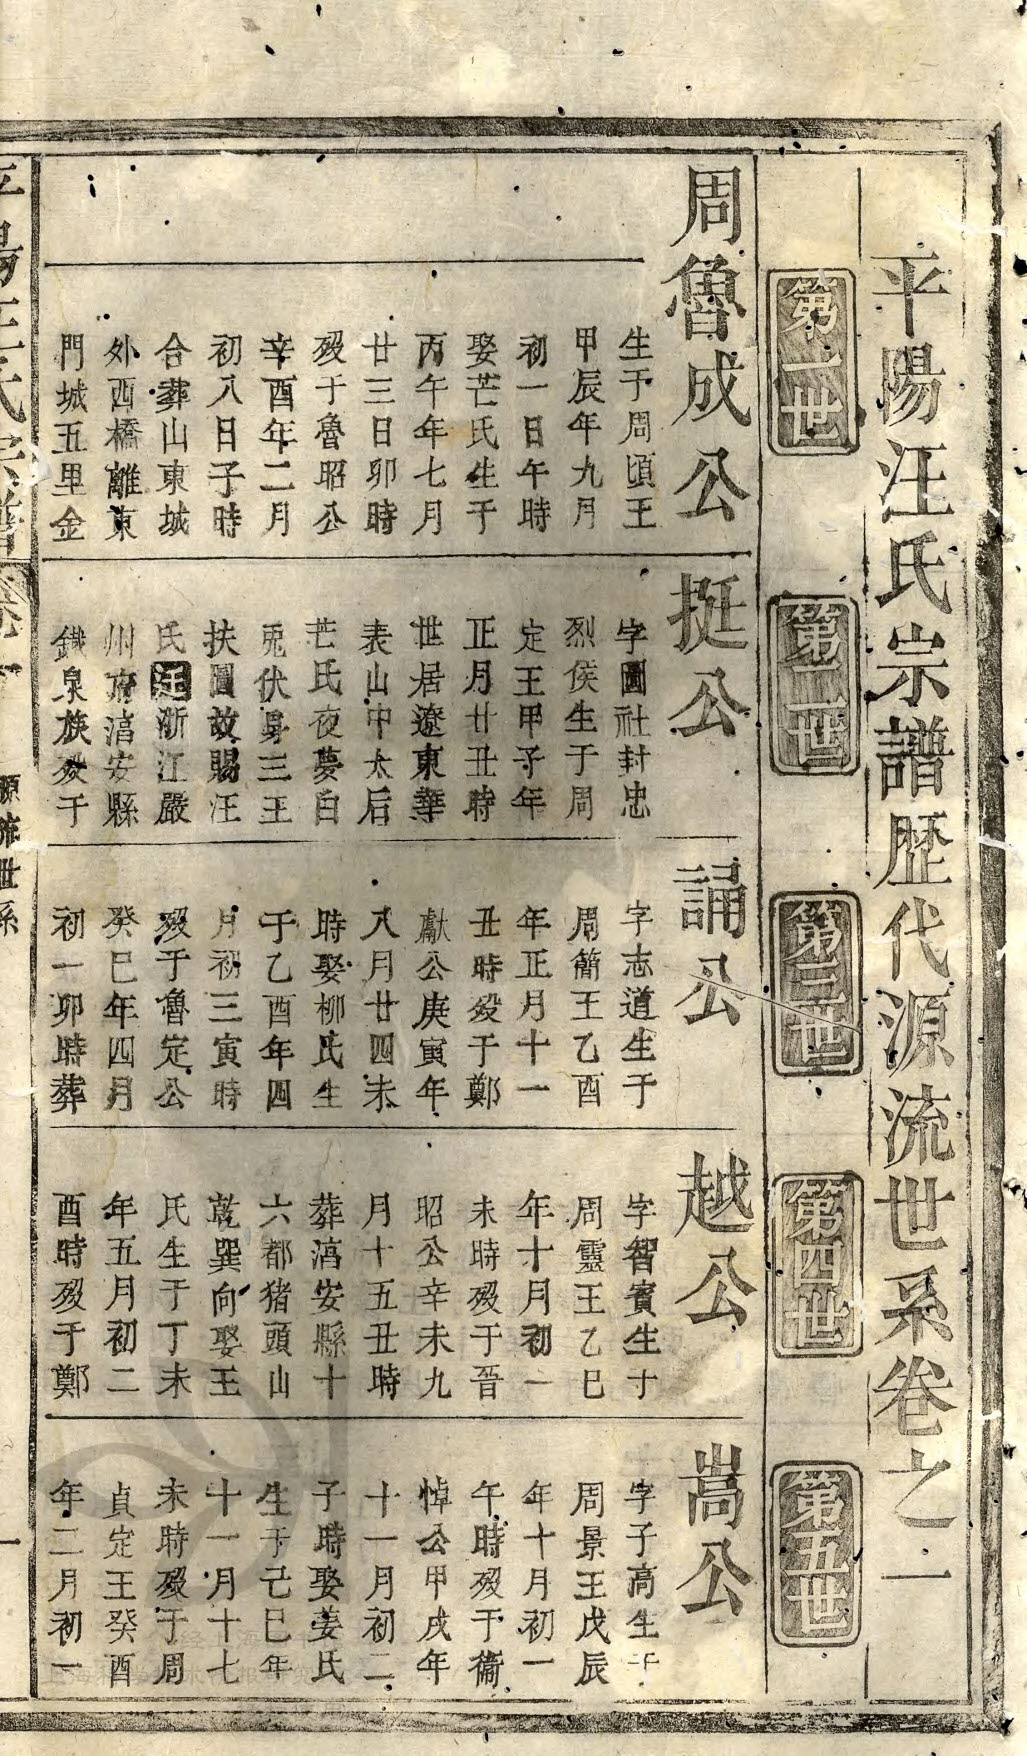 平陽汪氏宗譜歷代源流世系卷之一
第一世
第二世
第三世
第四世
第五世
周魯成公
生于周頃王
甲辰年九月
初一日午時
娶芒氏生于
丙午年七月
廿三日卯時
歿于魯昭公
辛酉年二月
初八日子時
合葬山東城
外西橋離東
門城五里金
挺公
字圖社封忠
烈侯生于周
定王甲子年
正月廿丑時
世居遼東華
表山中太后
芒氏夜夢白
兎伏身三王
扶圖故賜汪
氏汪浙江嚴
州府淳安縣
鐵泉族歿于
誦公
字志道生于
周簡王乙酉
年正月十一
丑時歿于鄭
獻公庚寅年
八月廿四未
時娶柳氏生
于乙酉年四
月初三寅時
歿于魯定公
癸巳年四月
初一卯時葬
越公
字智賓生于
周靈王乙巳
年十月初一
未時歿于晉
昭公辛未九
月十五丑時
葬淳安縣十
六都猪頭山
乾巽向娶王
氏生于丁未
年五月初二
酉時歿于鄭
嵩公
字子高生于
周景王戊辰
年十月初一
午時歿于衞
悼公甲戌年
十一月初二
子時娶姜氏
生于己巳年
十一月十七
未時歿于周
貞定王癸酉
年二月初一
平陽汪氏宗譜
源流世系
一